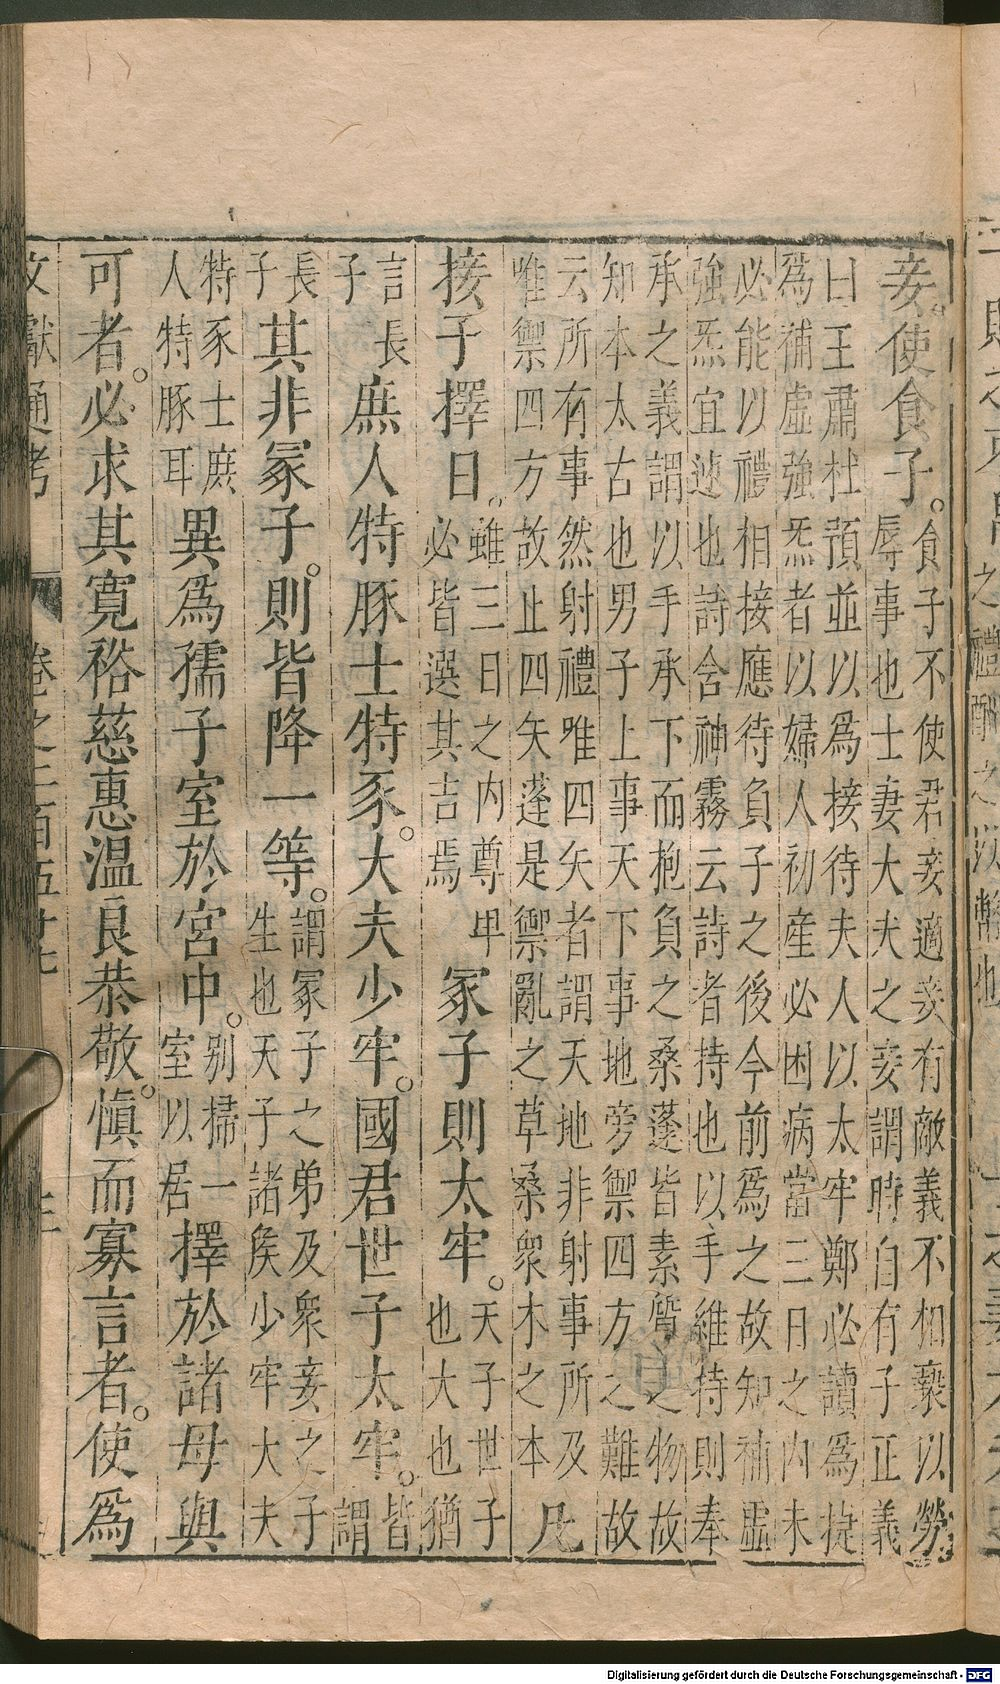 妾。使食子。
食子不使君妾適妾有敵義不相褻以勞
辱事也士妻大夫之妾謂時自有子正義
曰王肅杜預並以爲接待夫人以太牢鄭必讀爲捷
爲補虛強炁者以婦人初產必困病當三日之內未
必能以禮相接應待負子之後今前爲之故知補虛
強炁宜速也詩含神霧云詩者持也以手維持則奉
承之義謂以手承下而抱負之桑蓬皆素之物故
知本太古也男子上事天下事地旁禦四方之難故
云所有事然射禮唯四矢者謂天地非射事所及
唯禦四方故止四矢蓬是禦亂之草桑衆木之本
凡
接子擇日。
雖三日之內尊卑
必皆選其吉焉
冢子則太牢。
天子世子
也大也猶
言長
子
庶人特豚士特豕。大夫少牢。國君世子太牢。
皆
謂
長
子
其非冢子。則皆降一等。
謂冢子之弟及衆妾之子
生也天子諸侯少牢大夫
特豕士庶
人特豚耳
異爲孺子室於宮中。
别掃一
室以居
擇於諸母與
可者。必求其寬裕慈惠溫良恭敬。愼而寡言者。使爲
文獻通考
禮酬之以幣也
Digitalisierung gefördert durch die Deutsche Forschungsgemeinschaft - DFG